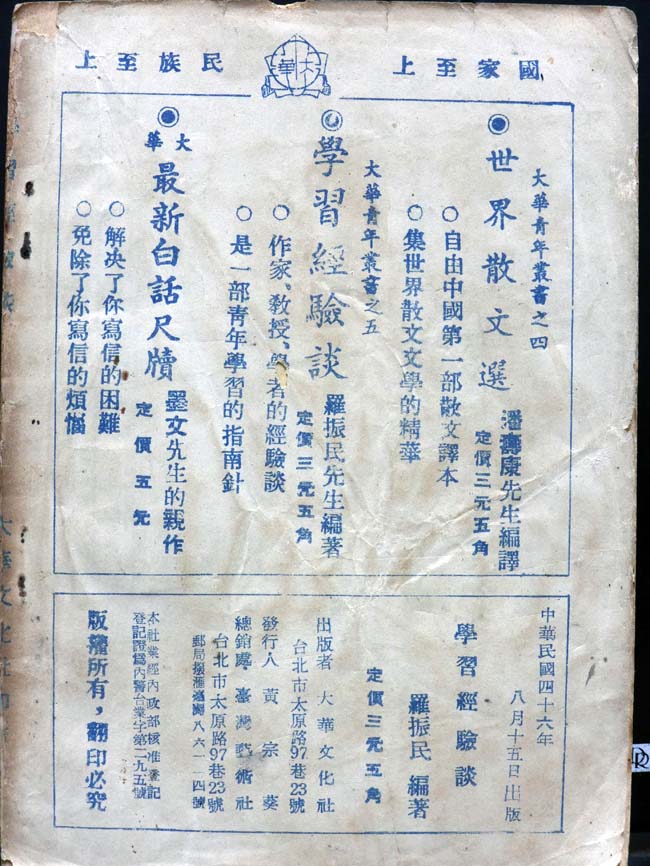 國家至上
大華
民族至上
大華青年叢書之四
◉世界散文選
潘壽康先生編譯
定價三元五角
○自由中國第一部散文譯本
○集世界散文文學的精華
大華青年叢書之五
◉學習經驗談
羅振民先生編著
定價三元五角
○作家、教授、學者的經驗談
○是一部青年學習的指南針
◉大華最新白話尺牘
墨文先生的親作
定價五元
○解決了你寫信的困難
○免除了你寫信的煩惱
中華民國四十六年
八月十五日出版
學習經驗談
羅振民 編著
定價三元五角
出版者 大華文化社
台北市太原路97巷23號
發行人 黃宗葵
總銷處 臺灣藝術社
台北市太原路97巷23號
郵局撥滙臺灣八六一一四號
本社業經內政部核准登記
登記證為內警台業字第二九五號
版權所有，翻印必究
大華文化社